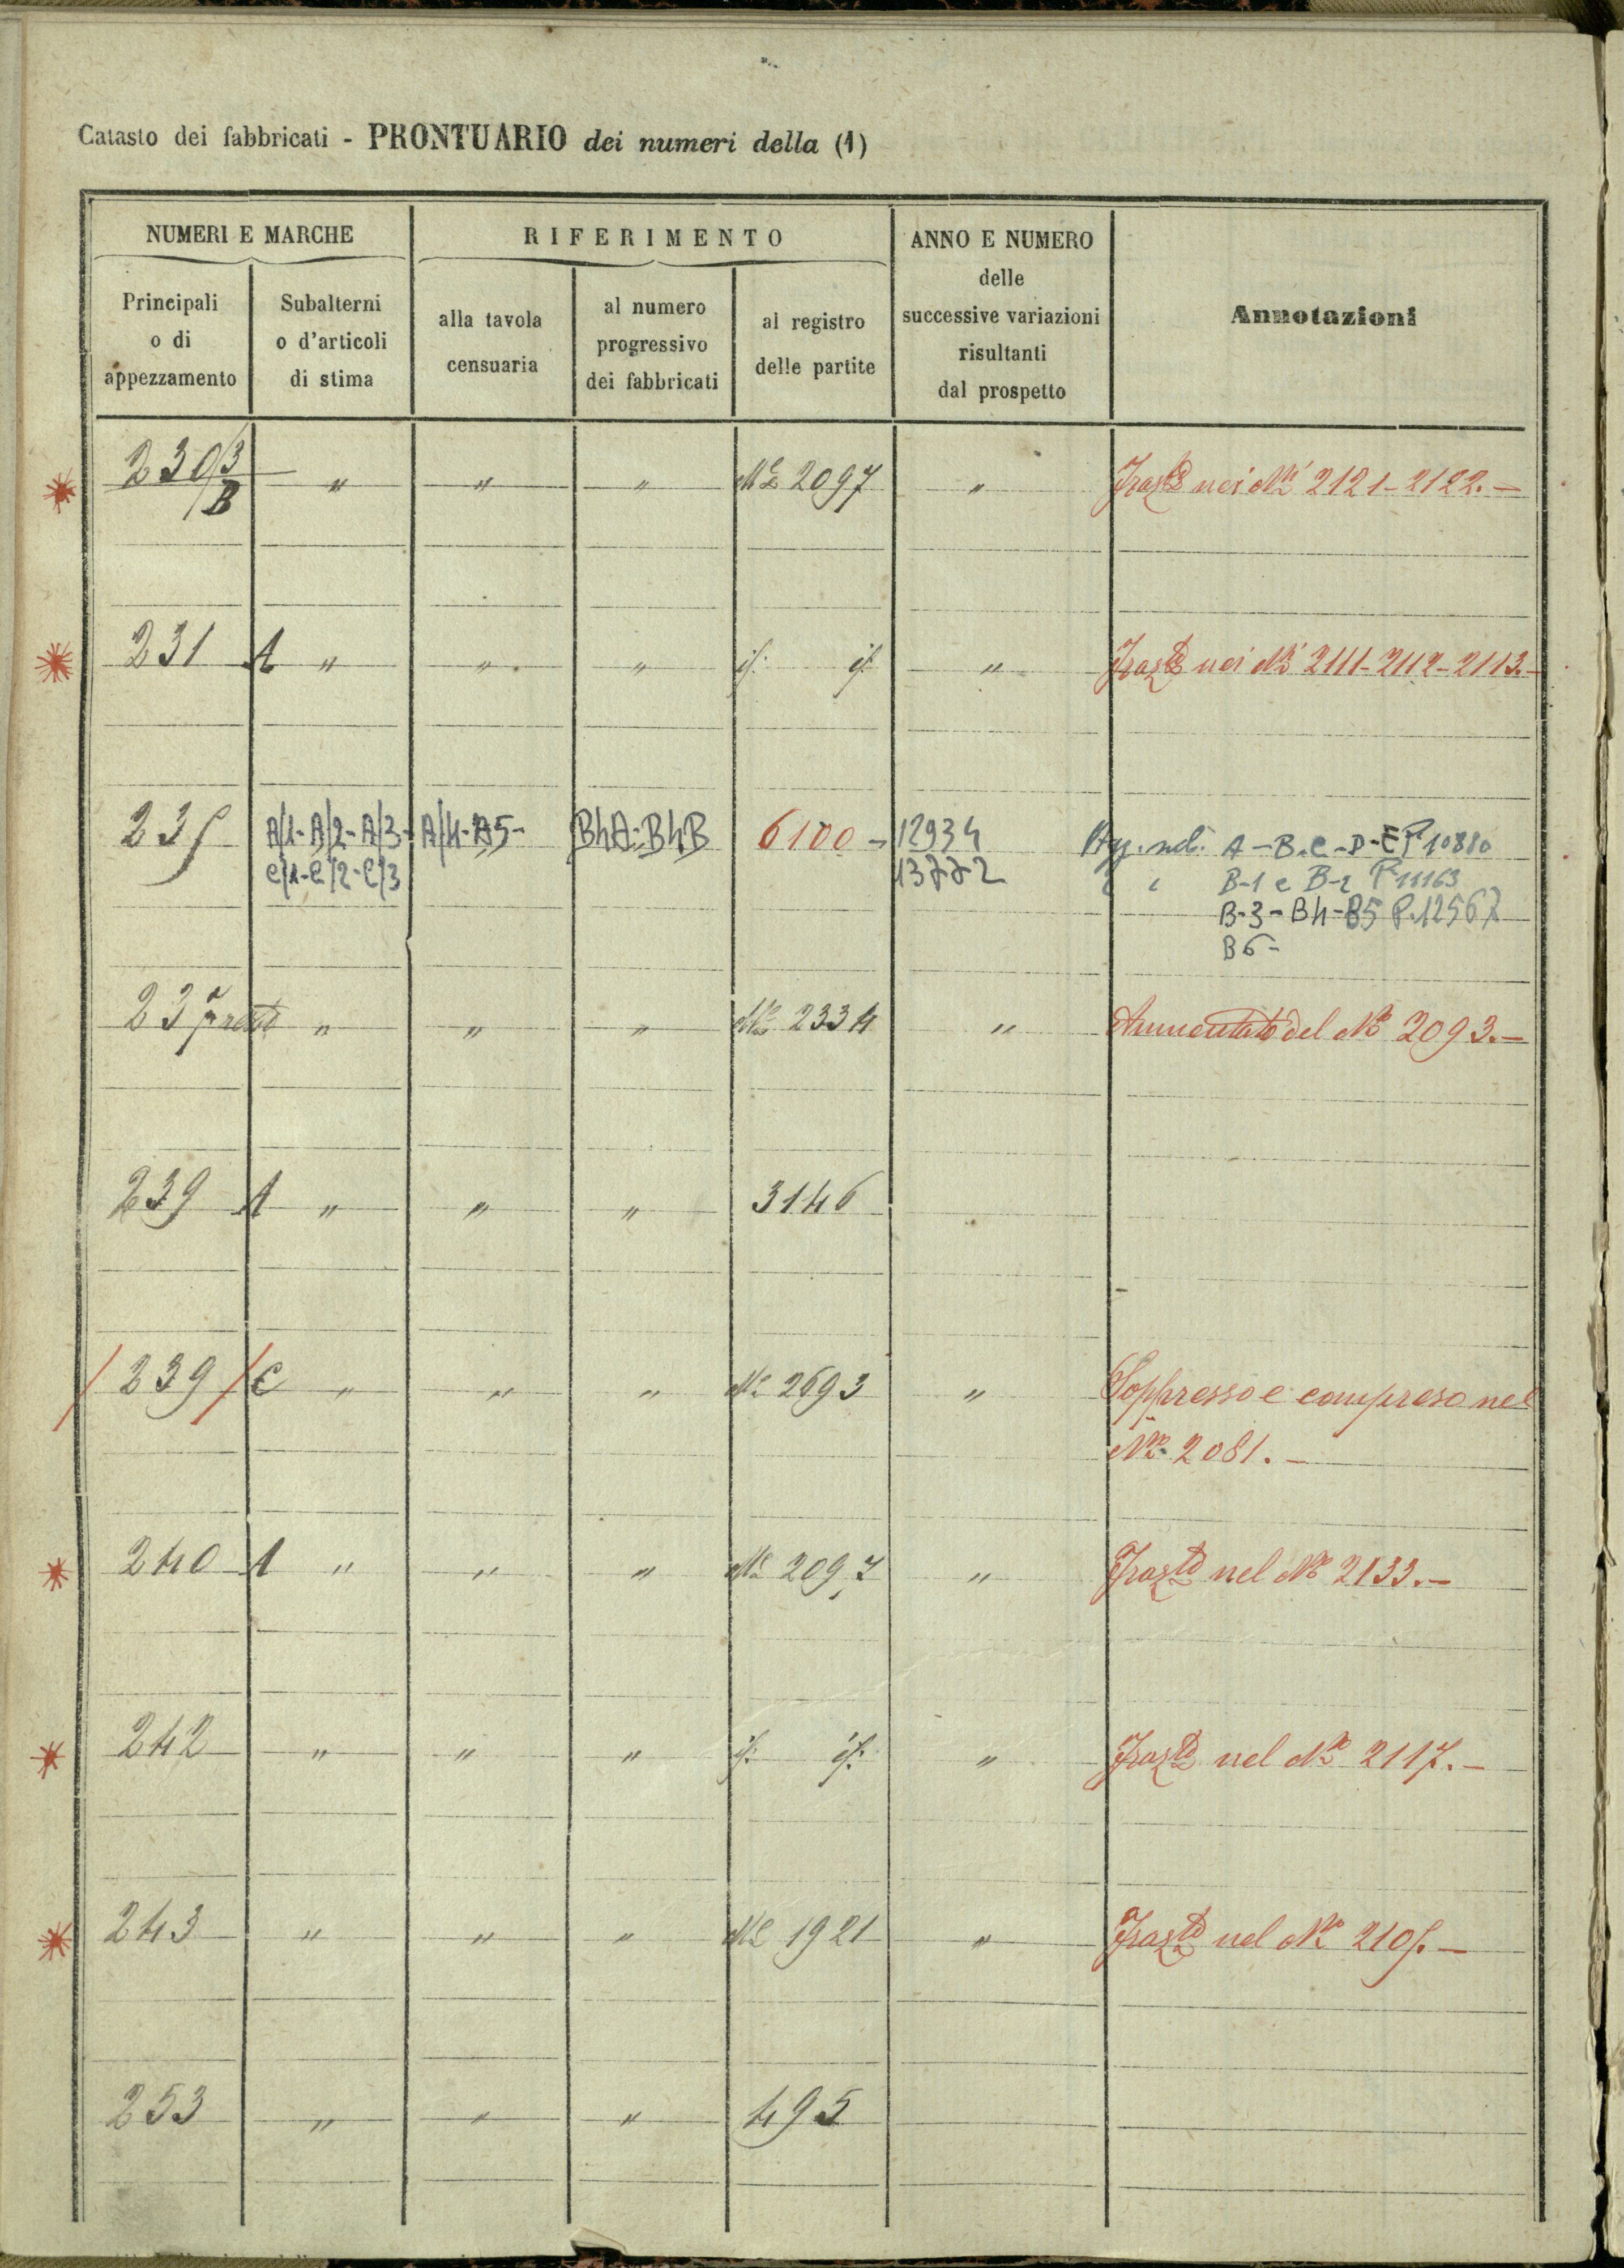 Catasto dei fabbricati - PRONTUARIO dei numeri della (1)
NUMERI E MARCHE
RIFERIMENTO
ANNO E NUMERO
delle
successive variazioni
risultanti
dal prospetto
Annotazioni
Principali
o di
appezzamento
Subalterni
o d'articoli
di stima
alla tavola
censuaria
al numero
progressivo
dei fabbricati
al registro
delle partite
230/3/B " " " 2097 " nei Ni 2121-2122.-
231 A " " " " nei Ni 2111-2112-2113.-
235 A/1-A/2-A/3- A/4-A5- B4A-B4B 6100 - 12934 A-B-C-D-E P 10880
C/1-C/2-C/3 13772 " " B-1 e B-2 P 11163
B-3-B4-B5 P.12567
B6-
" " " 2334 " Aumentato del No 2093.-
239 A " " " 3146
239 C " " " 2693 " Soppresso e compreso nel
No 2081.-
240 A " " " 2097 " nel No 2133.-
242 " " " " nel No 2117.-
243 " " " 1921 " nel No 2105.-
253 " " " 495